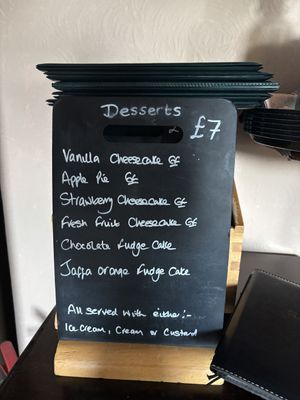 Desserts
£7
Vanilla Cheesecake GF
Apple Pie GF
Strawberry Cheesecake GF
Fresh Fruit Cheesecake GF
Chocolate Fudge Cake
Jaffa Orange Fudge Cake
All served with either:-
Ice Cream, Cream or Custard